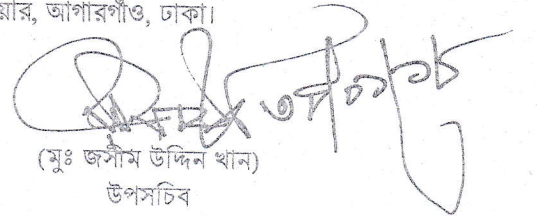 য়ার, আগারগাঁও, ঢাকা।
(মুঃ জসীম উদ্দিন খান)
উপসচিব